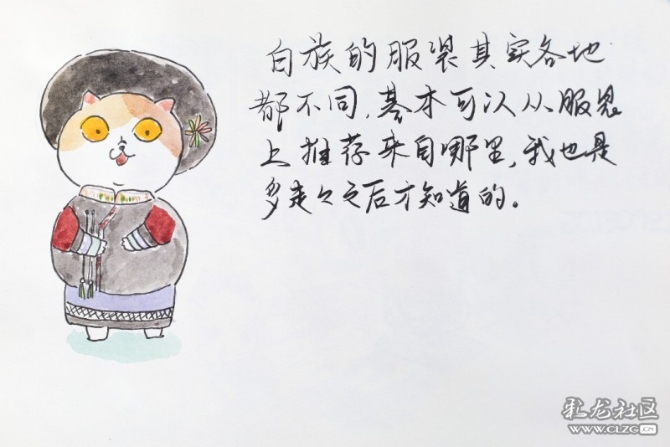 白族的服装其实各地
都不同,基本可以从服装
上推荐来自哪里,我也是
多走々之后才知道的。
彩龙社区
WWW.CLZG.CN